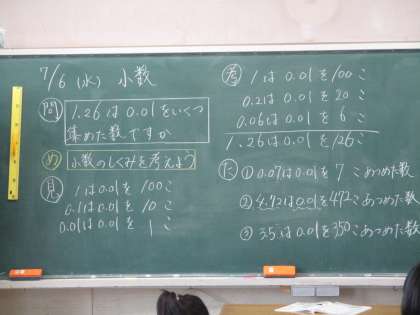 7/6 (水) 小数
問 1.26は0.01をいくつ
集めた数ですか
め 小数のしくみを考えよう
見 1は0.01を 100こ
0.1は0.01を 10こ
0.01は0.01を 1こ
考 1は0.01を100こ
0.2は0.01を 20こ
0.06は0.01を 6こ
1.26は0.01を126こ
た ① 0.07は0.01を 7こあつめた数
② 4.72は0.01を472こあつめた数
③ 3.5は0.01を350こあつめた数